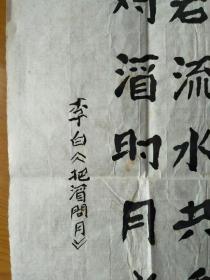 若流水共
对酒时月
李白《把酒問月》